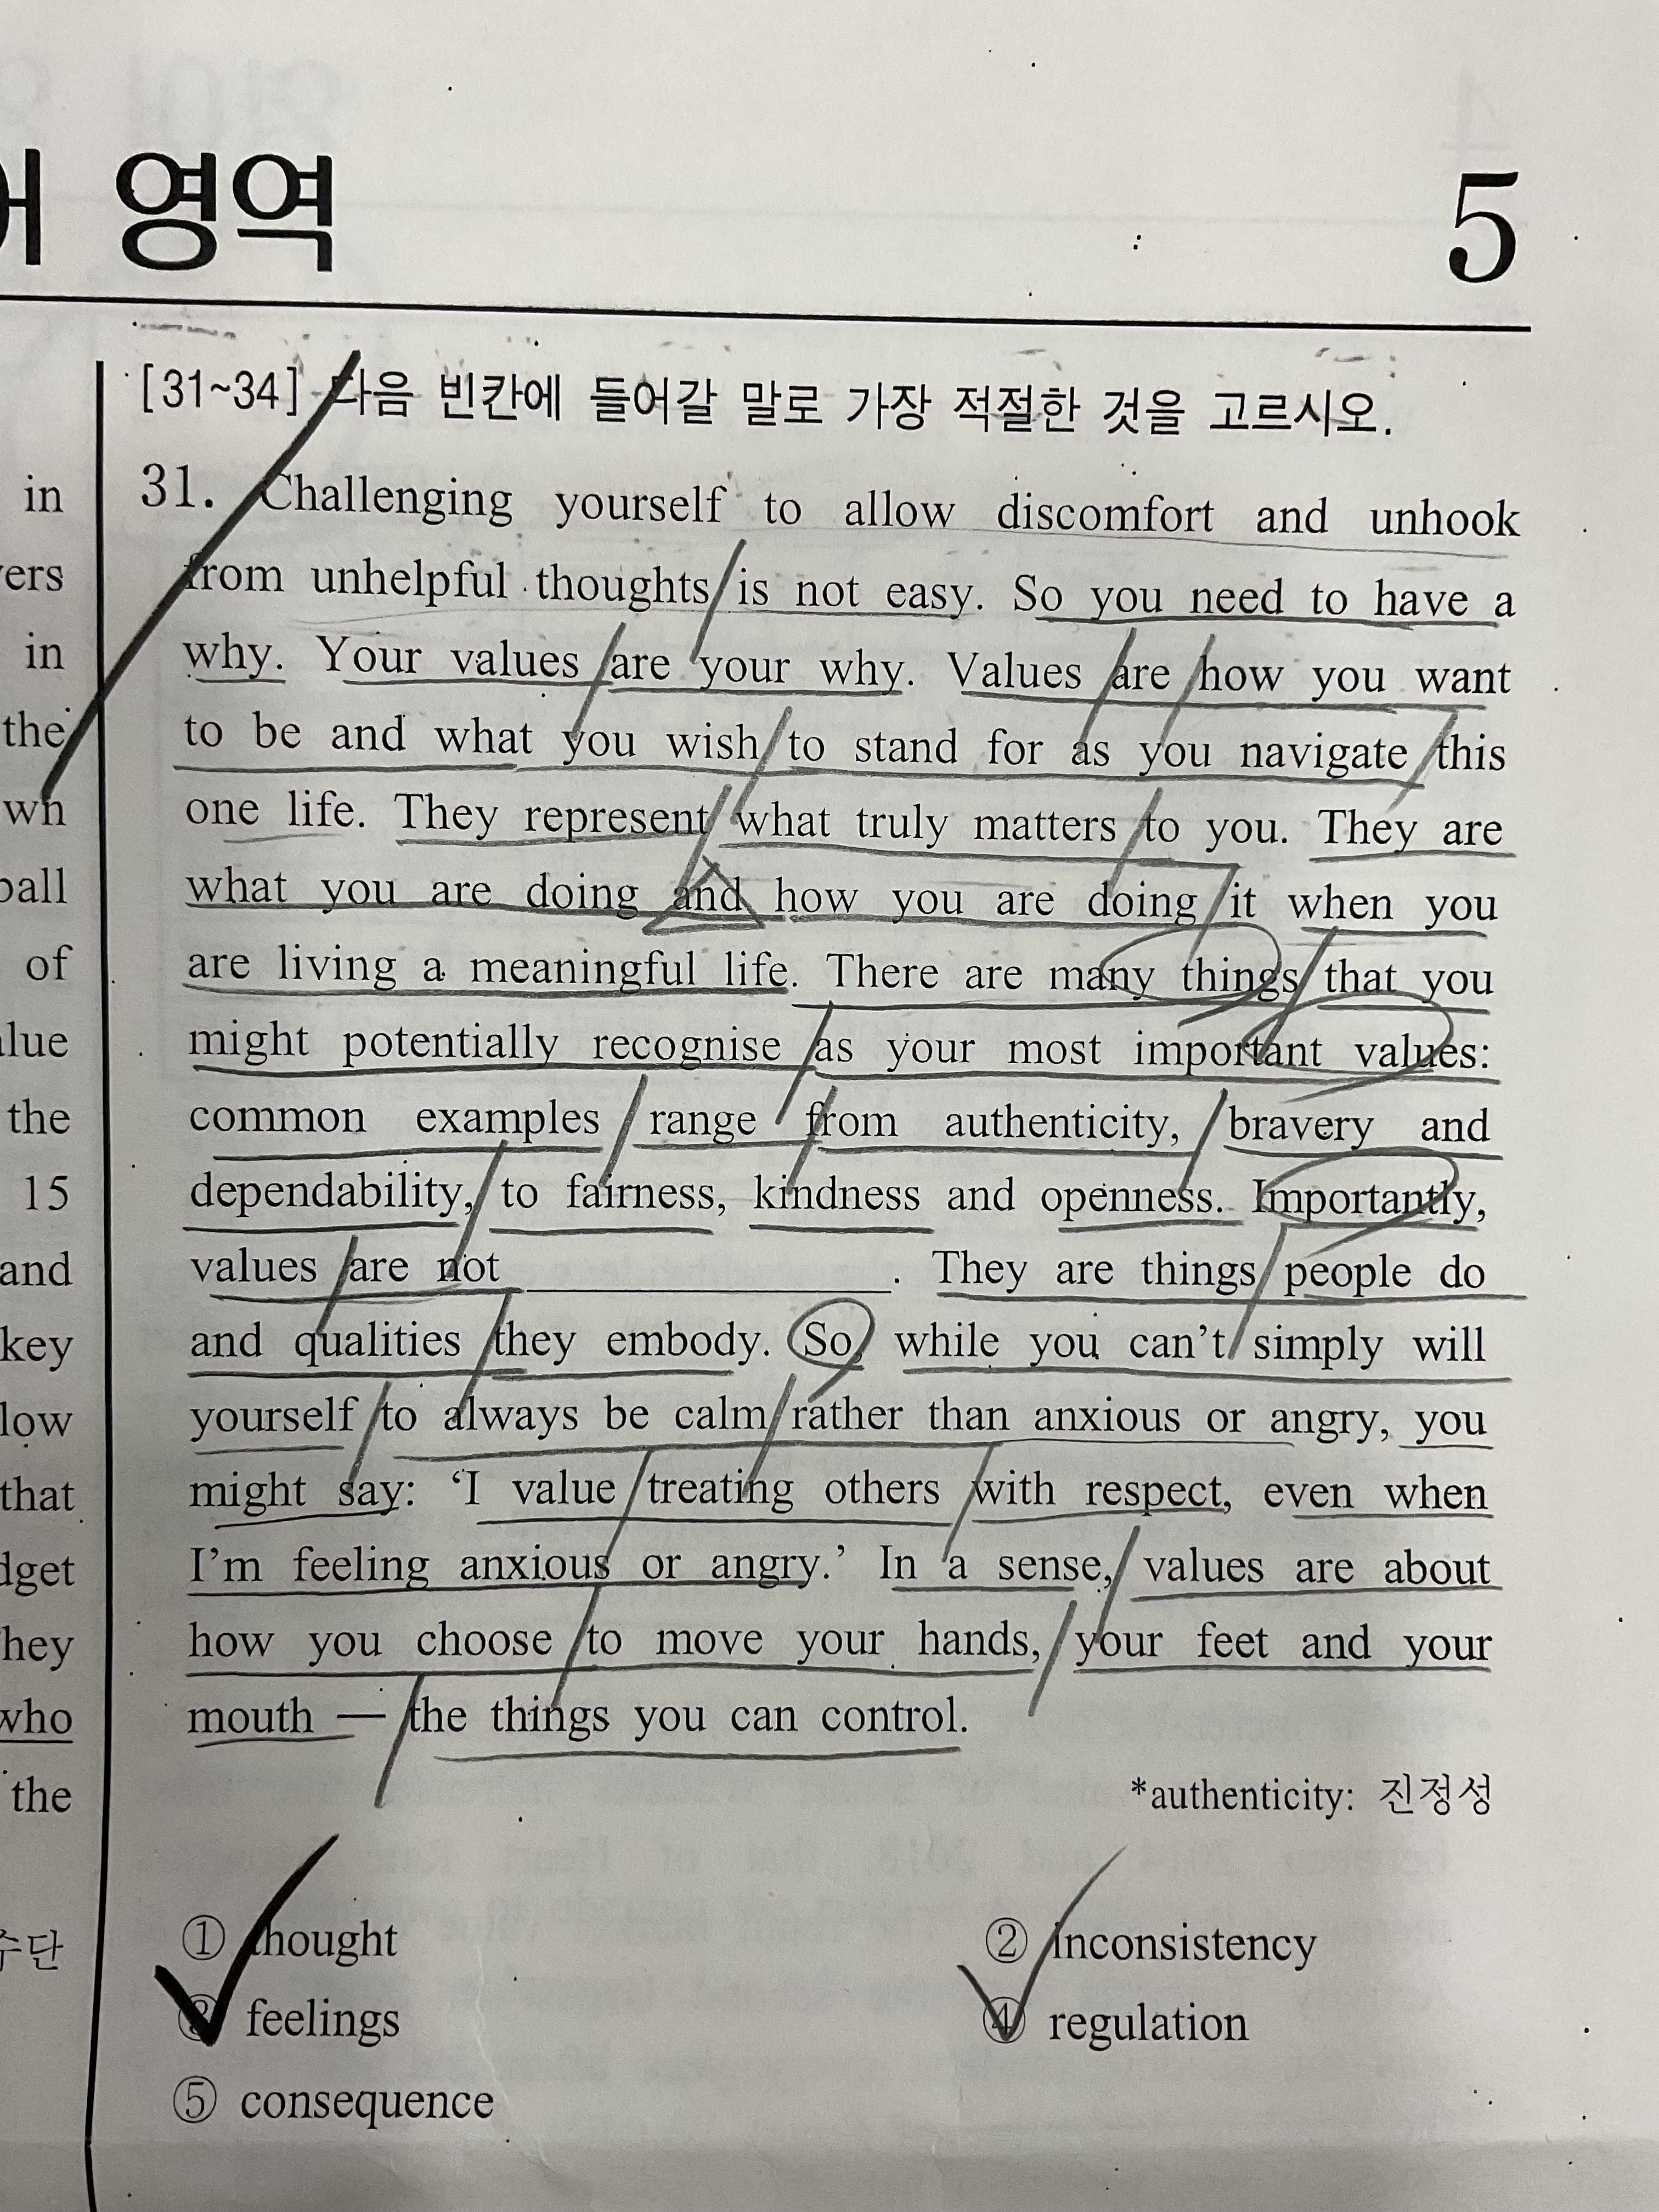 영역
5
in
the
of
the
15
and
key
low
that
who
the
수단
[31~34] 다음 빈칸에 들어갈 말로 가장 적절한 것을 고르시오.
31. Challenging yourself to allow discomfort and unhook
from unhelpful thoughts is not easy. So you need to have a
why. Your values are your why. Values are how you want
to be and what you wish to stand for as you navigate this
one life. They represent what truly matters to you. They are
what you are doing and how you are doing it when you
are living a meaningful life. There are many things that you
might potentially recognise as your most important values:
common examples range from authenticity, bravery and
dependability, to fairness, kindness and openness. Importantly,
values are not ____________. They are things people do
and qualities they embody. So, while you can't simply will
yourself to always be calm rather than anxious or angry, you
might say: 'I value treating others with respect, even when
I'm feeling anxious or angry.' In a sense, values are about
how you choose to move your hands, your feet and your
mouth — the things you can control.
*authenticity: 진정성
① thought
② inconsistency
③ feelings
④ regulation
⑤ consequence